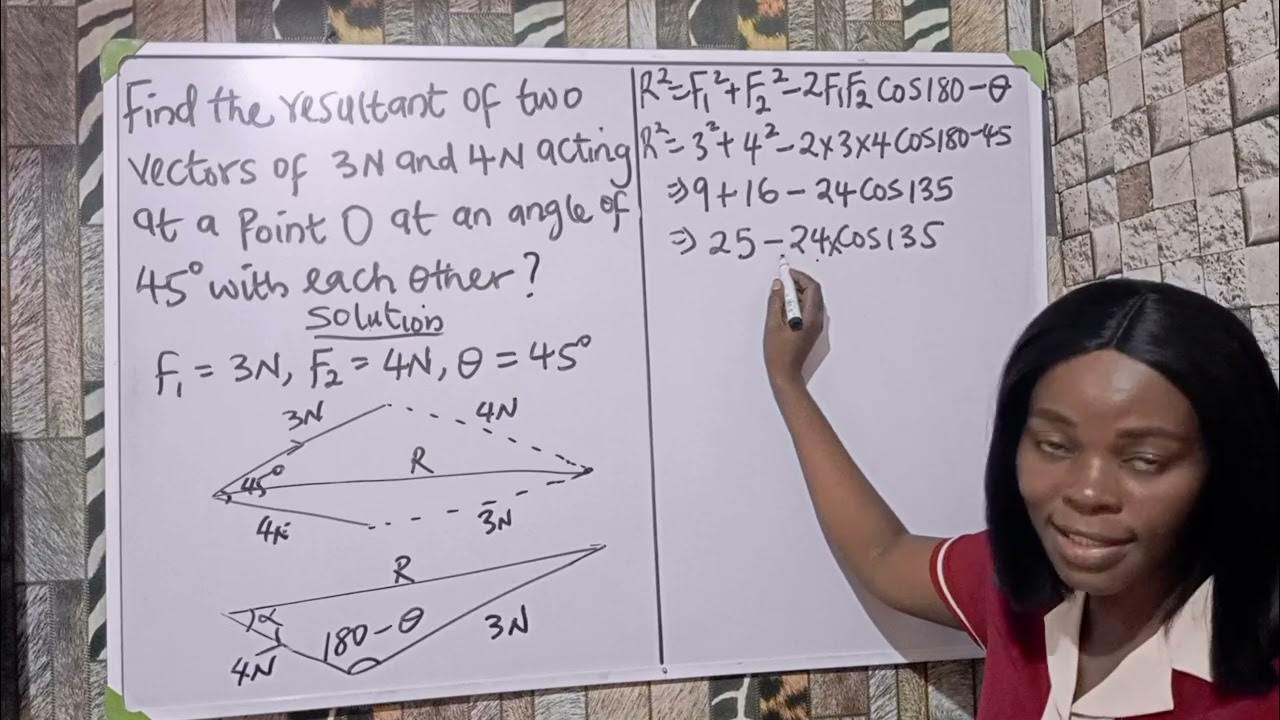 Find the resultant of two
vectors of 3N and 4N acting
at a point O at an angle of
45° with each other?
Solution
F₁ = 3N, F₂ = 4N, θ = 45°
3N
4N
R
45°
4N
3N
R
α
180-θ
3N
4N
R²=F₁²+F₂²-2F₁F₂ Cos180-θ
R²= 3²+4²-2x3x4Cos180-45
⇒9+16-24Cos135
⇒ 25-24xCos135